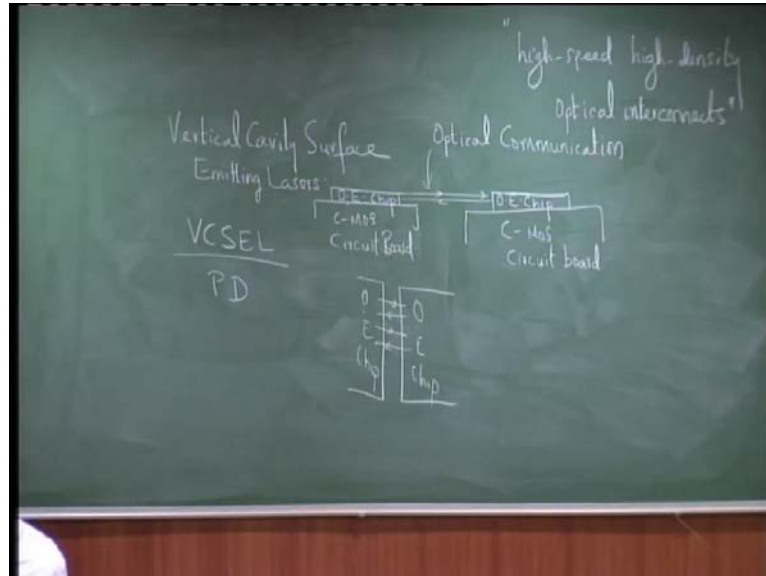 "high-speed high-density
Optical interconnects"
Vertical Cavity Surface
Emitting Lasers
Optical Communication
VCSEL
PD
O.E. Chip
C-MOS
Circuit Board
O.E. Chip
C-MOS
Circuit board
O
E
Chip
O
E
Chip